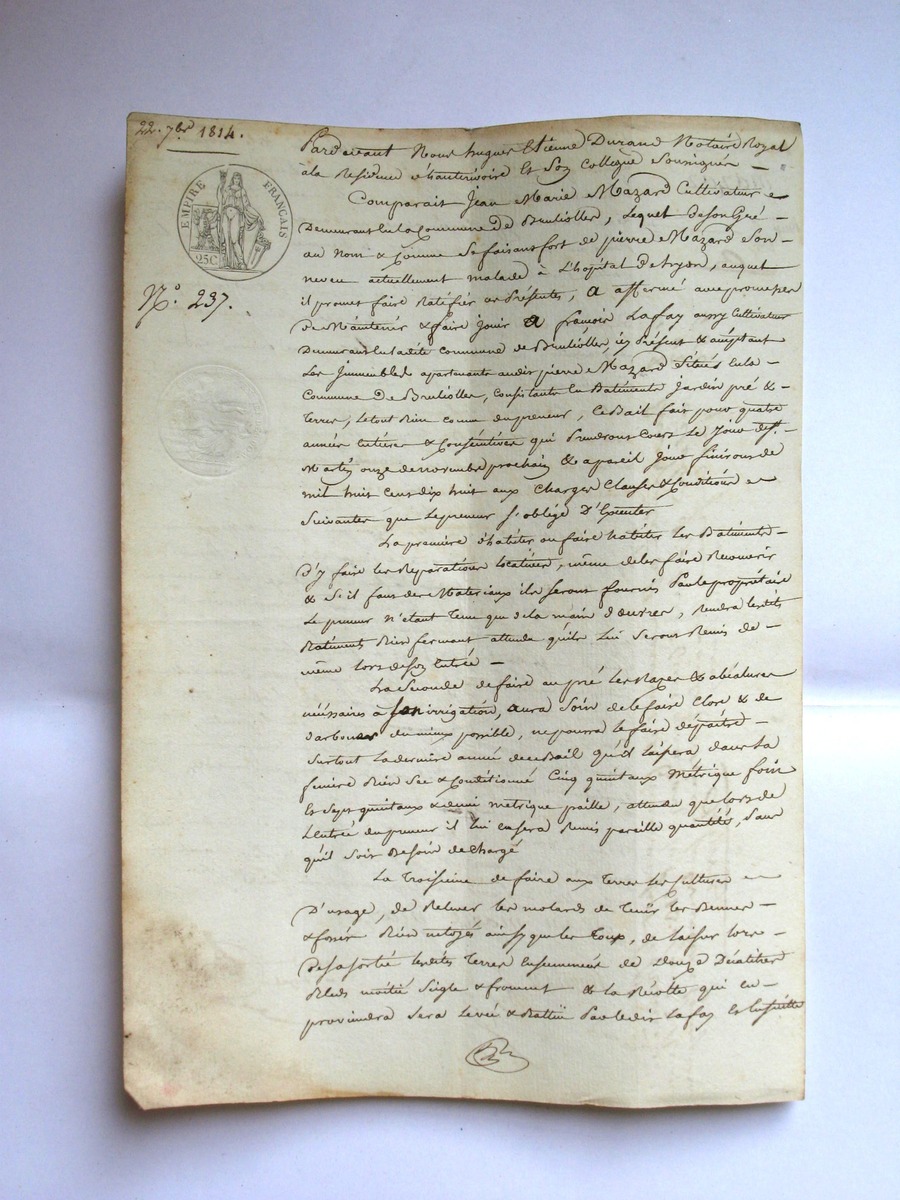 22. 7bre 1814.
EMPIRE FRANÇAIS
25C
N.° 237.
Pardevant Nous hugues Etienne Durand Notaire Royal
à la Residence d'hauterivoire Et Son Collegue Soussignés
Comparait Jean Marie Mazard Cultivateur
Demeurant En la Commune De Brulioller, Lequel de son Gré
au Nom & Comme Se faisant fort de pierre Mazard Son
neveu actuellement malade à L'hôpital De Lyon, auquel
il promet faire Ratifier ces Présentes, a affermé avec promesse
de Maintenir & faire jouir a françois Lafay aussy Cultivateur
Demeurant En ladite Commune de Brulioller, icy Présent & acceptant
Les Jmmeubles apartenants audit pierre Mazard Situés En la
Commune De Brulioller, Consistants En Batiments jardin pré &
Terres, Le tout Bien Connu du preneur, Ce Bail fait pour quatre
années Entieres & Consécutives qui Prendront Cours Le Jour de St.
Martin onze de novembre prochain & a pareil Jour finiront de
mil huit Cent dix huit aux Charges Clauses & Conditions
Suivantes que Le preneur S'oblige D'Executer
La premiere d'habiter ou faire habiter Les Batiments
D'y faire les Reparations Locatives, même de les faire Recouvrir
& S'il faut des Materiaux ils Seront fournis Par Le propriétaire
Le preneur n'étant Tenu que de la main d'oeuvre, Rendra lesdits
Batiments Bien fermant attendu qu'ils Lui Seront Remis de
même lors de Son Entrée
La Seconde de faire au pré Les Razes &
nécéssaires à son irrigation, aura Soin de le faire Clore & de
du mieux possible, ne pourra le faire dépaître
Surtout La derniere année de ce Bail qu'il laissera dans La
feniere Bien Sec & Conditionné Cinq quintaux Métrique foin
Et Sept quintaux & demi metrique paille, attendu que lors de
L'entrée du preneur il lui en sera Remis pareille quantité, Sans
qu'il Soit Besoin de Chargé
La Troisieme de faire aux Terres Les Cultures
D'usage, de Relever les molards de Tenir les
& fossés Bien netoyés ainsy que les de laisser lors
De sa Sortie lesdites Terres Ensemmencé de Douze Décalitres
Bleds moitié Seigle & froment & La Récolte qui en
proviendra Sera Levée & Battue Par Ledit Lafay Et Ensuite